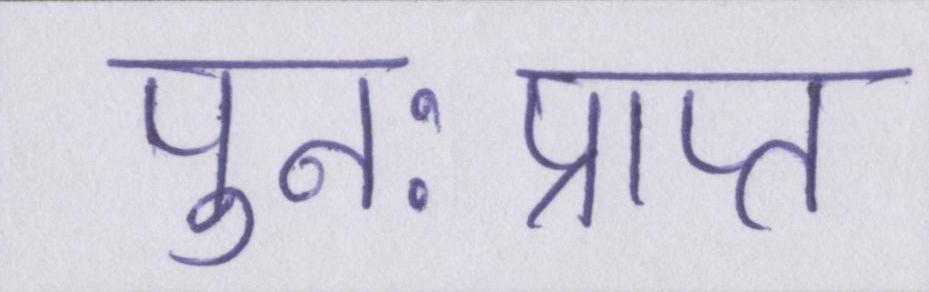 पुनःप्राप्त